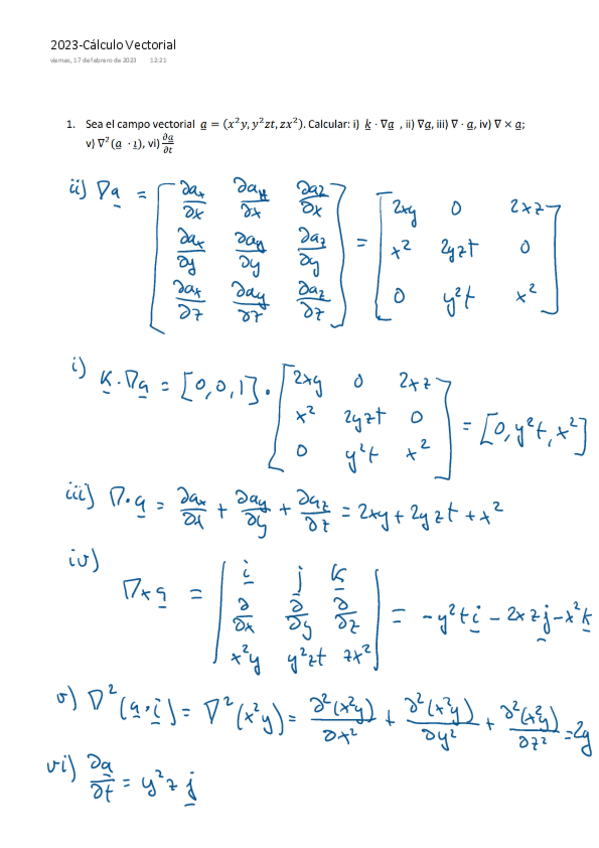 2023-Cálculo Vectorial
viernes, 17 de febrero de 2023 12:21
1. Sea el campo vectorial a = (x²y, y²zt, zx²). Calcular: i) k · ∇a , ii) ∇a, iii) ∇ · a, iv) ∇ × a;
v) ∇²(a · ı), vi) ∂a/∂t
ii) ∇a = [∂ax/∂x ∂ay/∂x ∂az/∂x; ∂ax/∂y ∂ay/∂y ∂az/∂y; ∂ax/∂z ∂ay/∂z ∂az/∂z] = [2xy 0 2xz; x² 2yzt 0; 0 y²t x²]
i) k · ∇a = [0,0,1] · [2xy 0 2xz; x² 2yzt 0; 0 y²t x²] = [0, y²t, x²]
iii) ∇·a = ∂ax/∂x + ∂ay/∂y + ∂az/∂z = 2xy + 2yzt + x²
iv)
∇×a = |i j k; ∂/∂x ∂/∂y ∂/∂z; x²y y²zt zx²| = -y²t i - 2xz j - x² k
v) ∇²(a·i) = ∇²(x²y) = ∂²(x²y)/∂x² + ∂²(x²y)/∂y² + ∂²(x²y)/∂z² = 2y
vi) ∂a/∂t = y²z j